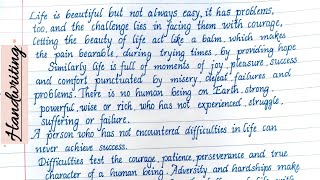 Handwriting
Life is beautiful but not always easy, it has problems,
too, and the challenge lies in facing them with courage,
letting the beauty of life act like a balm, which makes
the pain bearable during trying times by providing hope
Similarly life is full of moments of joy, pleasure, success
and comfort punctuated by misery, defeat, failures and
problems. There is no human being on Earth, strong,
powerful, wise or rich who has not experienced, struggle,
suffering or failure.
A person who has not encountered difficulties in life can
never achieve success.
Difficulties test the courage, patience, perseverance and true
character of a human being. Adversity and hardships make